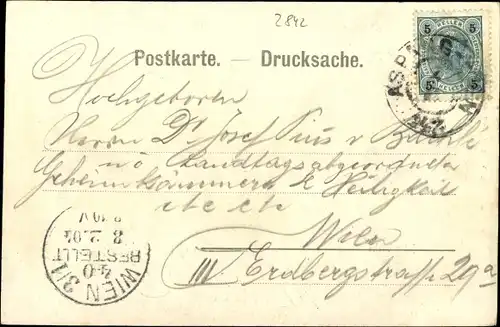 2842
5 HELLER 5
5 5
Postkarte. — Drucksache.
ASPANG
Hochgeboren
Herrn Dr Josef Pius v
nö Landtagsabgeordneter
Geheimkämmerer S. Heiligkeit
etc etc
Wien
III Erdbergstraße 29a
WIEN 3/1
40
BESTELLT
8. 2. 04